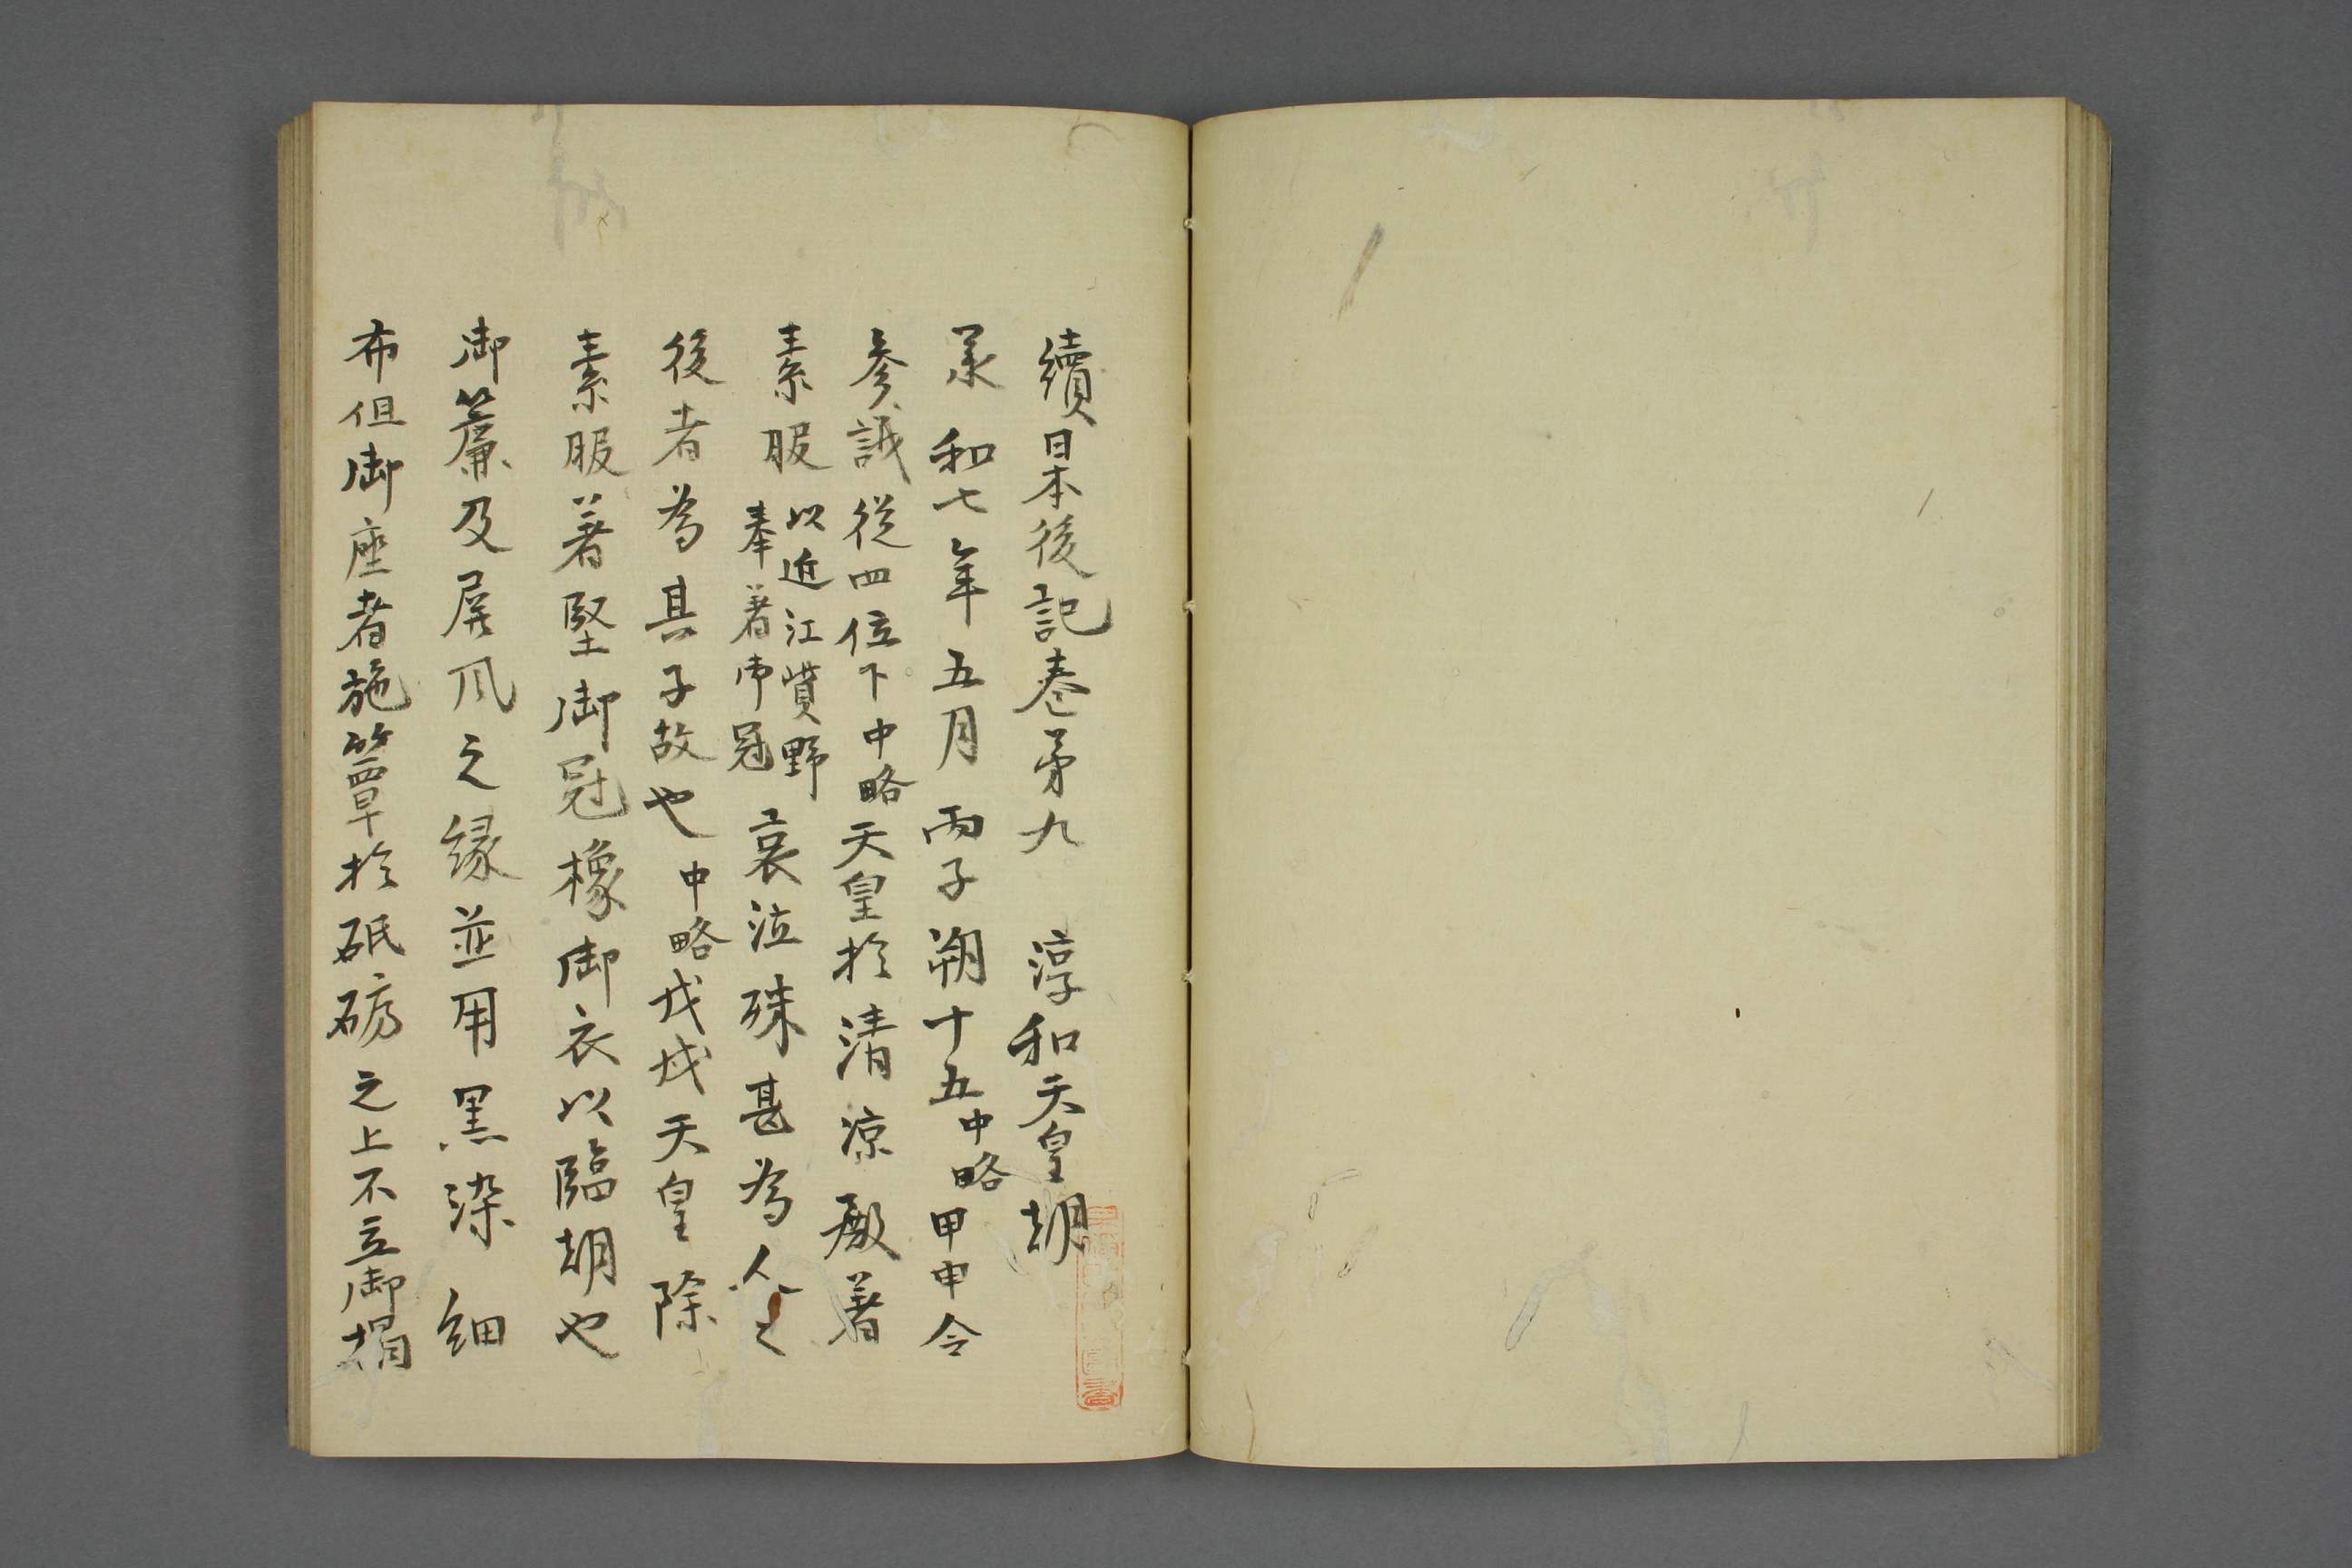 續日本後記卷第九　淳和天皇朝
承和七年五月丙子朔十五中略甲申令
参議從四位下中略天皇於清凉殿著
素服以近江貲野
奉著布冠哀泣殊甚為人之
後者為其子故也中略戊戌天皇除
素服著堅御冠橡御衣以臨朝也
御簾及屏風之緣並用黑染細
布但御座者施簟於砥礪之上不立御榻